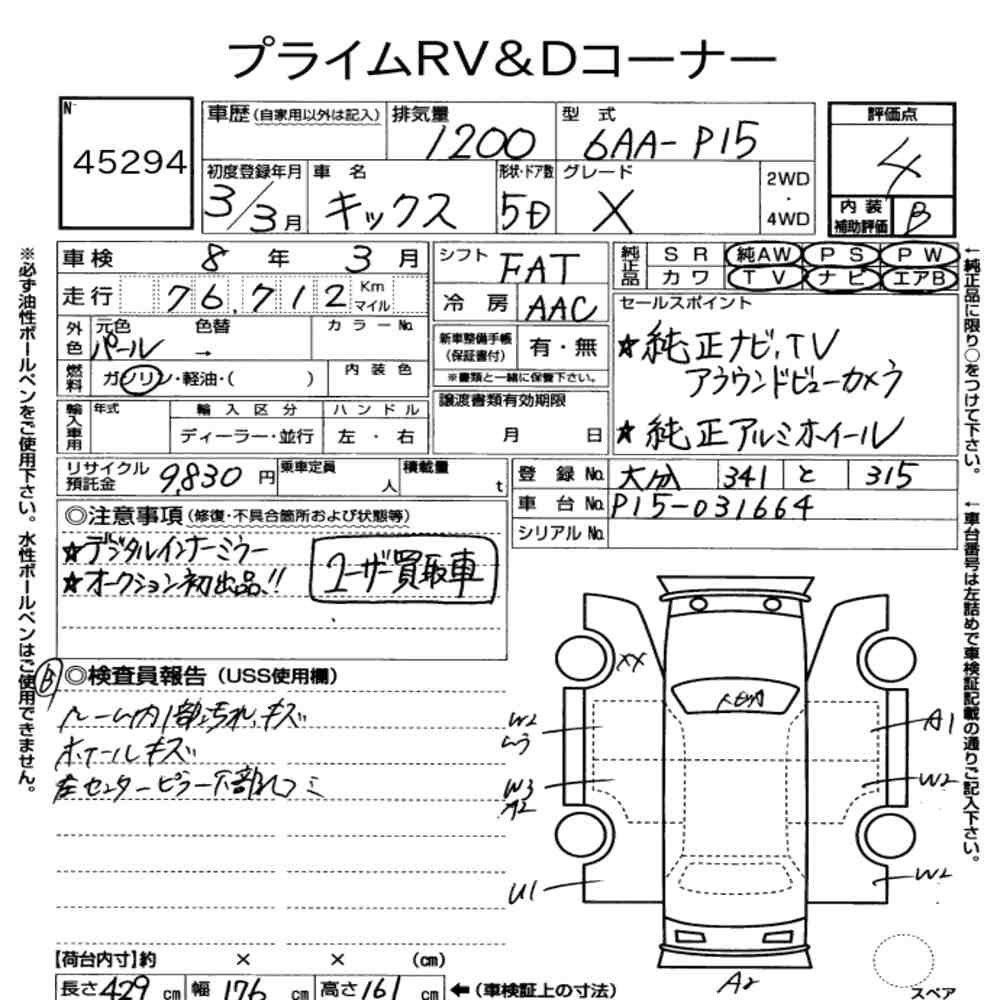 プライムRV&Dコーナー
N-
45294
車歴(自家用以外は記入)
排気量 1200
型式 6AA-P15
評価点 4
初度登録年月 3/3月
車名 キックス
形状・ドア数 5D
グレード X
2WD・4WD
内装補助評価 B
車検 8年 3月
走行 76,712 Km マイル
外色 元色 パール → 色替
カラーNo.
燃料 ガソリン・軽油・( )
内装色
輸入車用 年式
輸入区分 ディーラー・並行
ハンドル 左・右
シフト FAT
冷房 AAC
新車整備手帳(保証書付) 有・無
※書類と一緒に保管下さい。
譲渡書類有効期限 月 日
純正品 SR 純AW PS PW
カワ TV ナビ エアB
セールスポイント
★純正ナビ、TV
アラウンドビューカメラ
★純正アルミホイール
リサイクル預託金 9,830円
乗車定員 人
積載量 t
登録No. 大分 341 と 315
車台No. P15-031664
シリアルNo.
◎注意事項(修復・不具合箇所および状態等)
★デジタルインナーミラー
★オークション初出品!!
ユーザー買取車
B
◎検査員報告(USS使用欄)
ルーム内1部汚れ、キズ
ホイールキズ
左センターピラー下部
XX
W2
W3
U1
A1
W2
W2
A2
スペア
【荷台内寸】約 × × (cm)
長さ429cm 幅176cm 高さ161cm ←(車検証上の寸法)
※必ず油性ボールペンをご使用下さい。水性ボールペンはご使用できません。
←純正品に限り○をつけて下さい。
←車台番号は左詰めで車検証記載の通りご記入下さい。